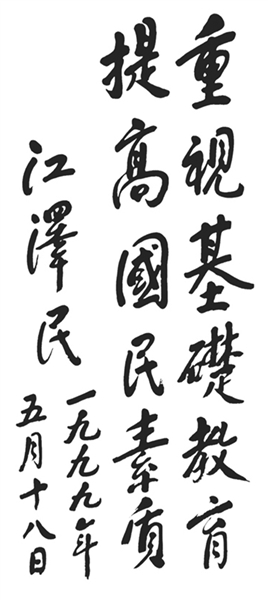 重視基礎教育
提高國民素質
江澤民
一九九九年
五月十八日